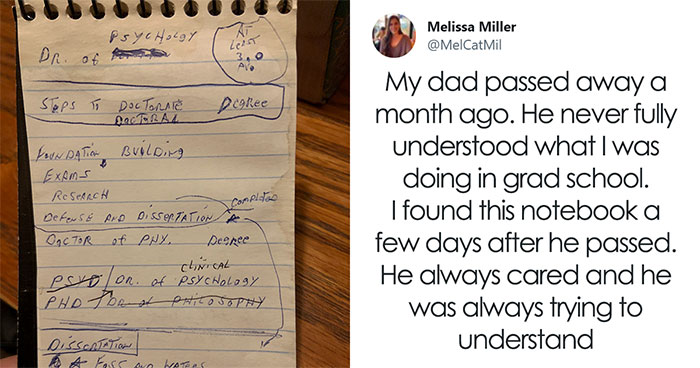 PSYCHOLOGY
DR. of
AT
LEAST
3.0
AV.
STEPS TO DOCTORATE DEGREE
DOCTORAL
FOUNDATION BUILDING
EXAMS
RESEARCH
DEFENSE AND DISSERTATION
COMPLETED
DOCTOR of PHY. DEGREE
CLINICAL
PSYD / DR. of PSYCHOLOGY
PHD DR. of PHILOSOPHY
DISSERTATION
AND
Melissa Miller
@MelCatMil
My dad passed away a
month ago. He never fully
understood what I was
doing in grad school.
I found this notebook a
few days after he passed.
He always cared and he
was always trying to
understand